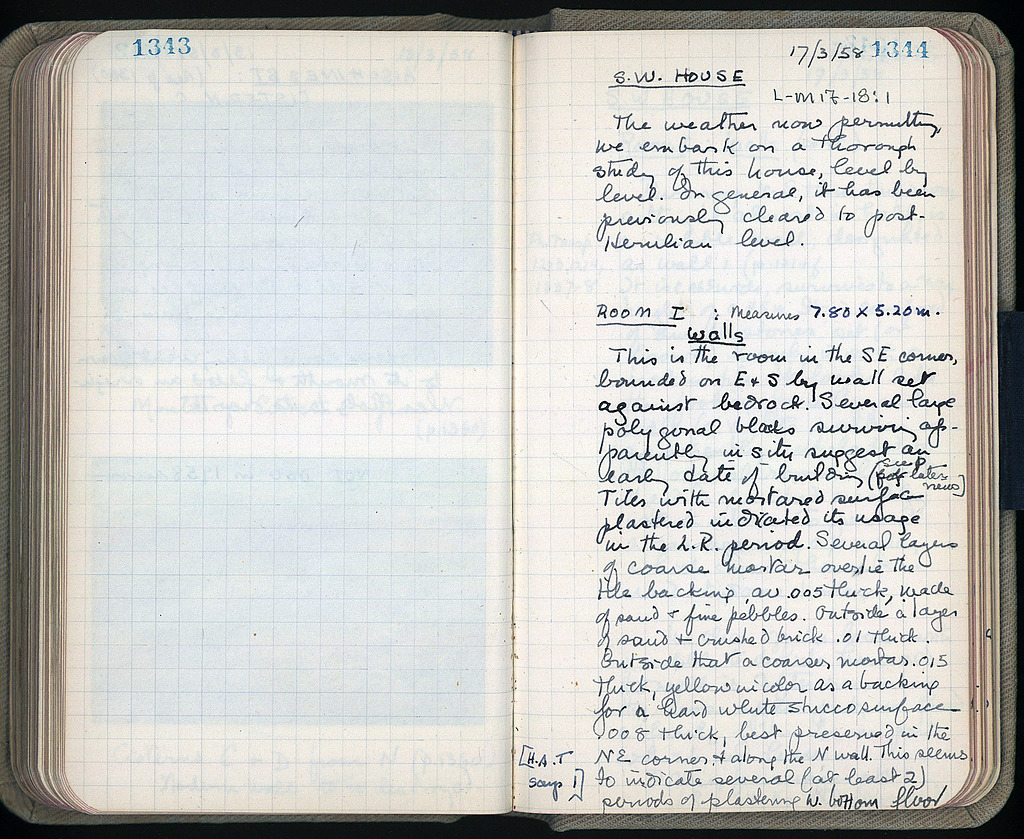 1343
17/3/58 1344
S.W. HOUSE
L-M 17-18:1
The weather now permitting,
we embark on a thorough
study of this house, level by
level. In general, it has been
previously cleared to post-
Herulian level.
ROOM I : Measures 7.80 x 5.20 m.
Walls
This is the room in the SE corner,
bounded on E + S by wall set
against bedrock. Several large
polygonal blocks surviving ap-
parently in situ suggest an
early date of building (see
for later
news)
Tiles with mortared surface
plastered indicated its usage
in the L.R. period. Several layers
of coarse mortar overlie the
tile backing, av .005 thick, made
of sand + fine pebbles. Outside a layer
of sand + crushed brick .01 thick.
Outside that a coarser mortar .015
thick, yellow in color as a backing
for a hard white stucco surface
.008 thick, best preserved in the
NE corner + along the N wall. This seems
[H.A.T
says !]
to indicate several (at least 2)
periods of plastering w. bottom floor